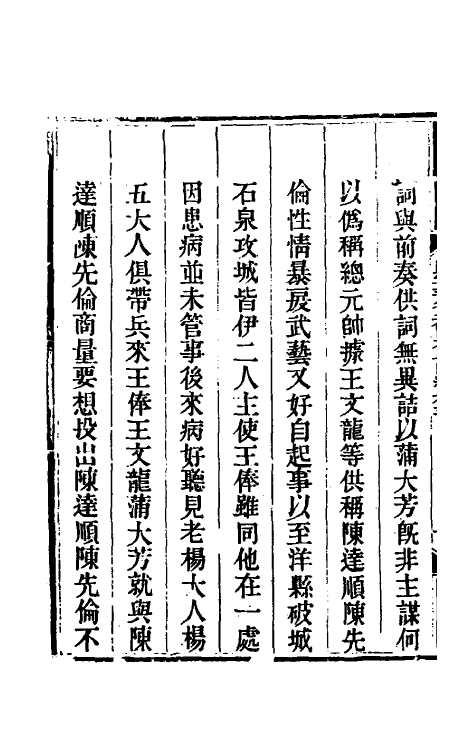 詞與前奏供詞無異詰以蒲大芳旣非主謀何
以僞稱總元帥據王文龍等供稱陳達順陳先
倫性情暴戾武藝又好自起事以至洋縣破城
石泉攻城皆伊二人主使王俸雖同他在一處
因患病並未管事後來病好聽見老楊大人楊
五大人俱帶兵來王俸王文龍蒲大芳就與陳
達順陳先倫商量要想投出陳達順陳先倫不